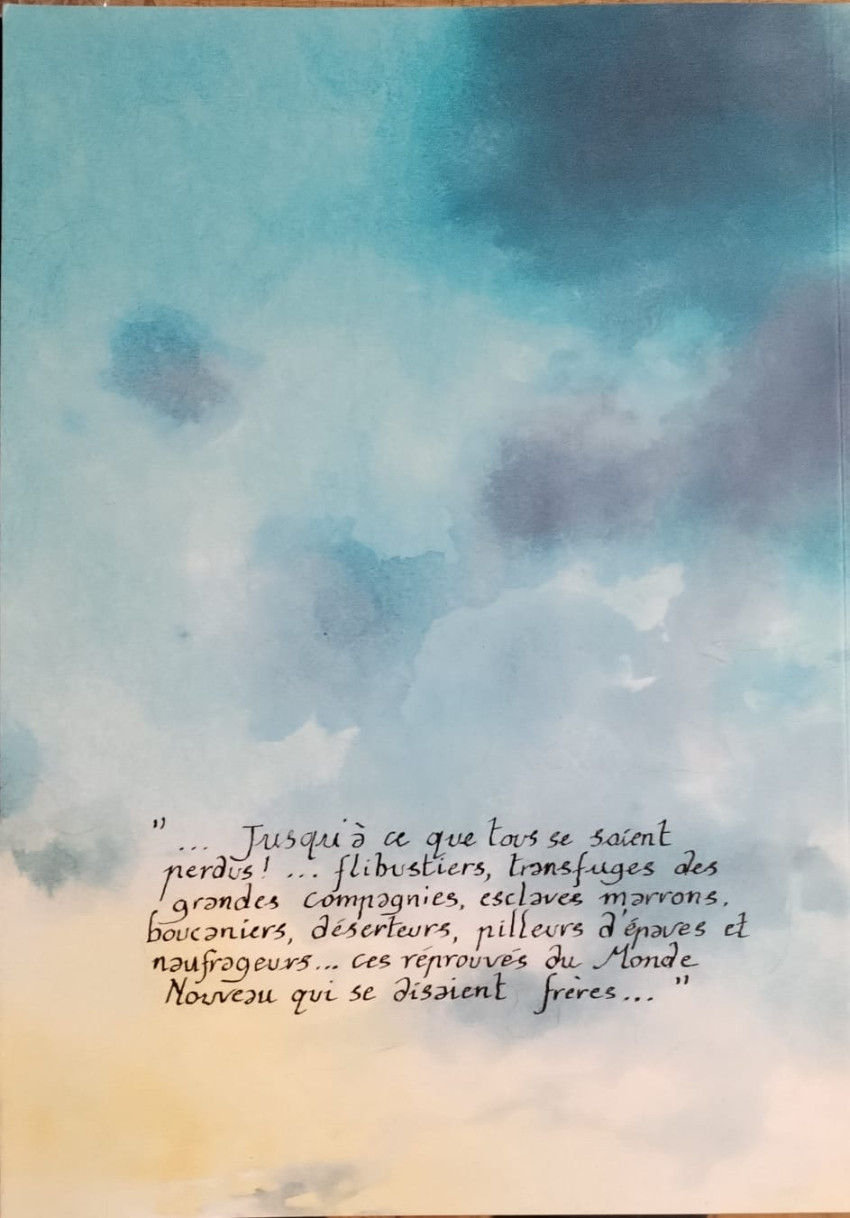 "... Jusqu'à ce que tous se soient
perdus! ... flibustiers, transfuges des
grandes compagnies, esclaves marrons,
boucaniers, déserteurs, pilleurs d'épaves et
naufrageurs... ces réprouvés du Monde
Nouveau qui se disaient frères... "